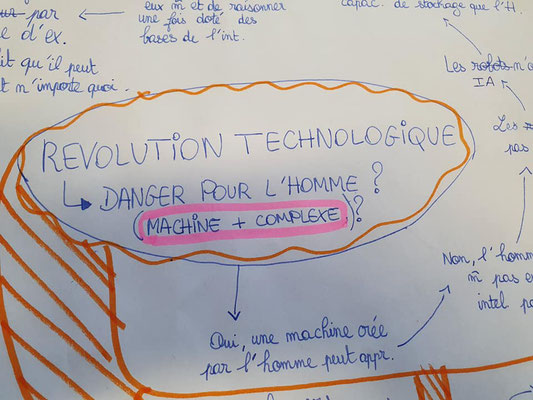 par
e d'ex.
it qu'il peut
t n'importe quoi.
eux m̄ et de raisonner
une fois doté des
bases de l'int.
capac. de stockage que l'H.
Les robots n'o
IA
Les
pas
REVOLUTION TECHNOLOGIQUE
↳ DANGER POUR L'HOMME ?
(MACHINE + COMPLEXE)?
Oui, une machine créé
par l'homme peut appr.
Non, l'homm
m̄ pas e
intel po